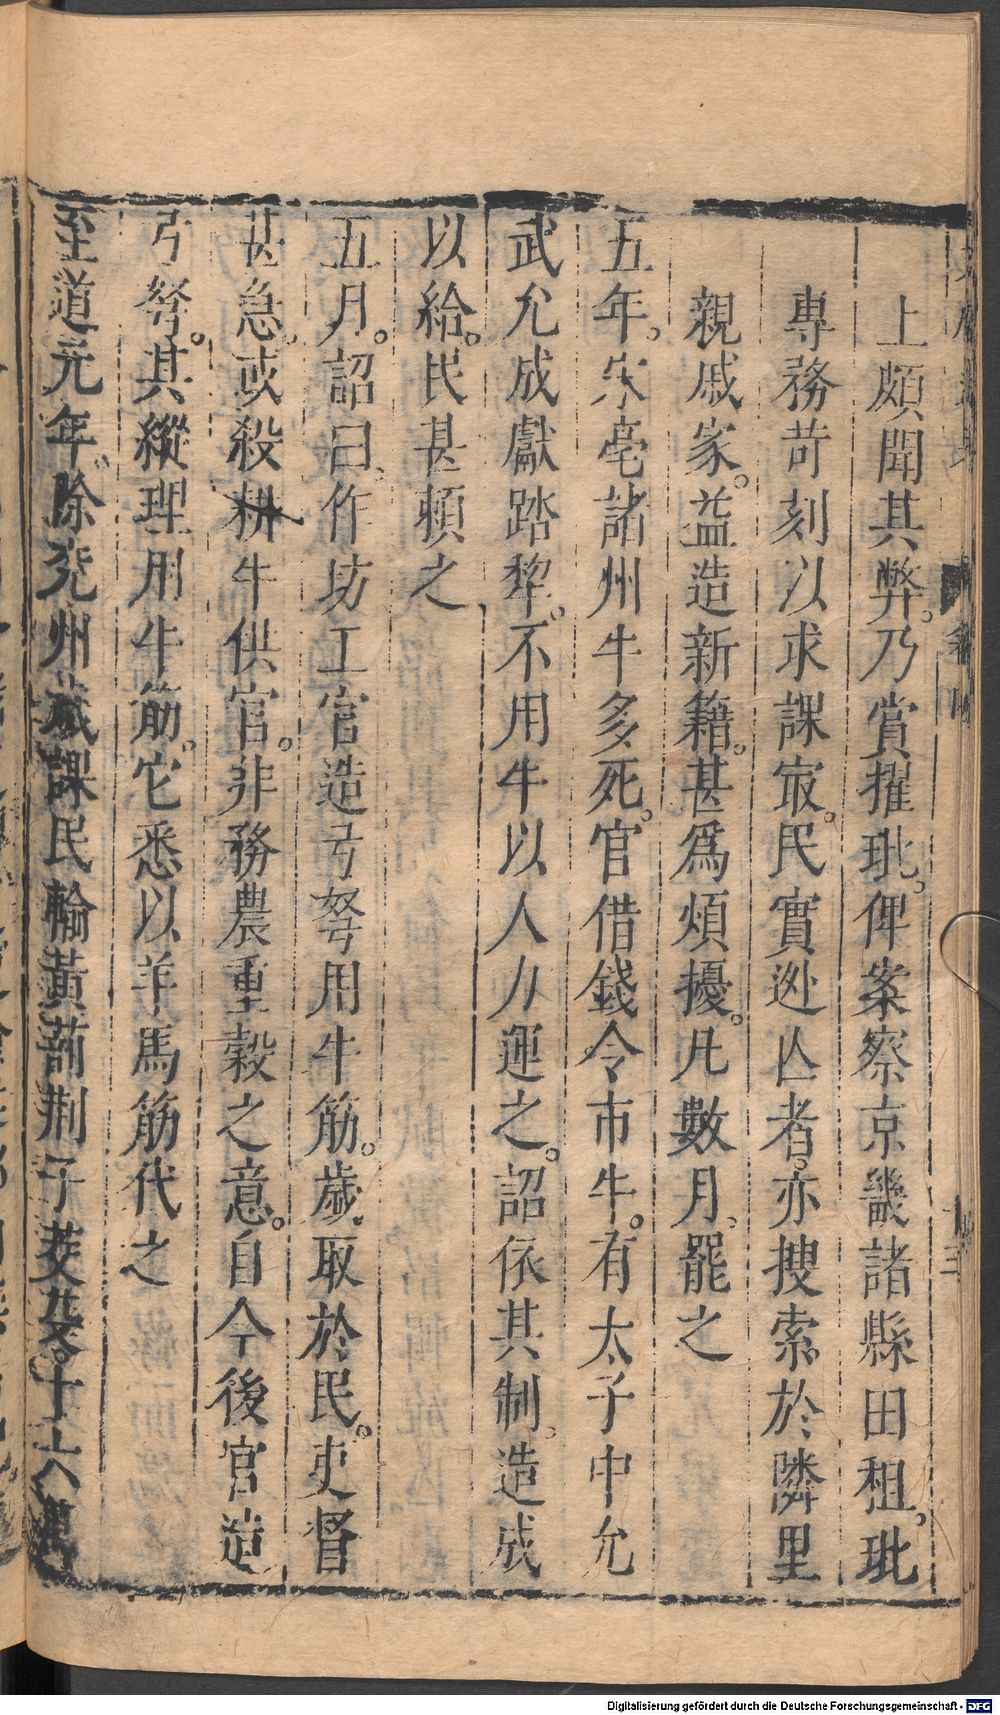 上頗聞其弊。乃賞擢玭。俾案察京畿諸縣田租。玭
專務苛刻以求課㝡。民實逃亾者。亦搜索於隣里
親戚家。益造新籍。甚爲煩擾。凡數月。罷之
五年。宋亳諸州牛多死。官借錢令市牛。有太子中允
武允成獻踏犂。不用牛以人力運之。詔依其制。造成
以給。民甚頼之
五月。詔曰。作坊工官造弓弩用牛筋。歲取於民。吏督
甚急。或殺耕牛供官。非務農重穀之意。自今後官造
弓弩。其縱理用牛筋。它悉以羊馬筋代之
至道元年。除兖州歲課民輸黃蒭荆子茭芟。十六萬
Digitalisierung gefördert durch die Deutsche Forschungsgemeinschaft - DFG